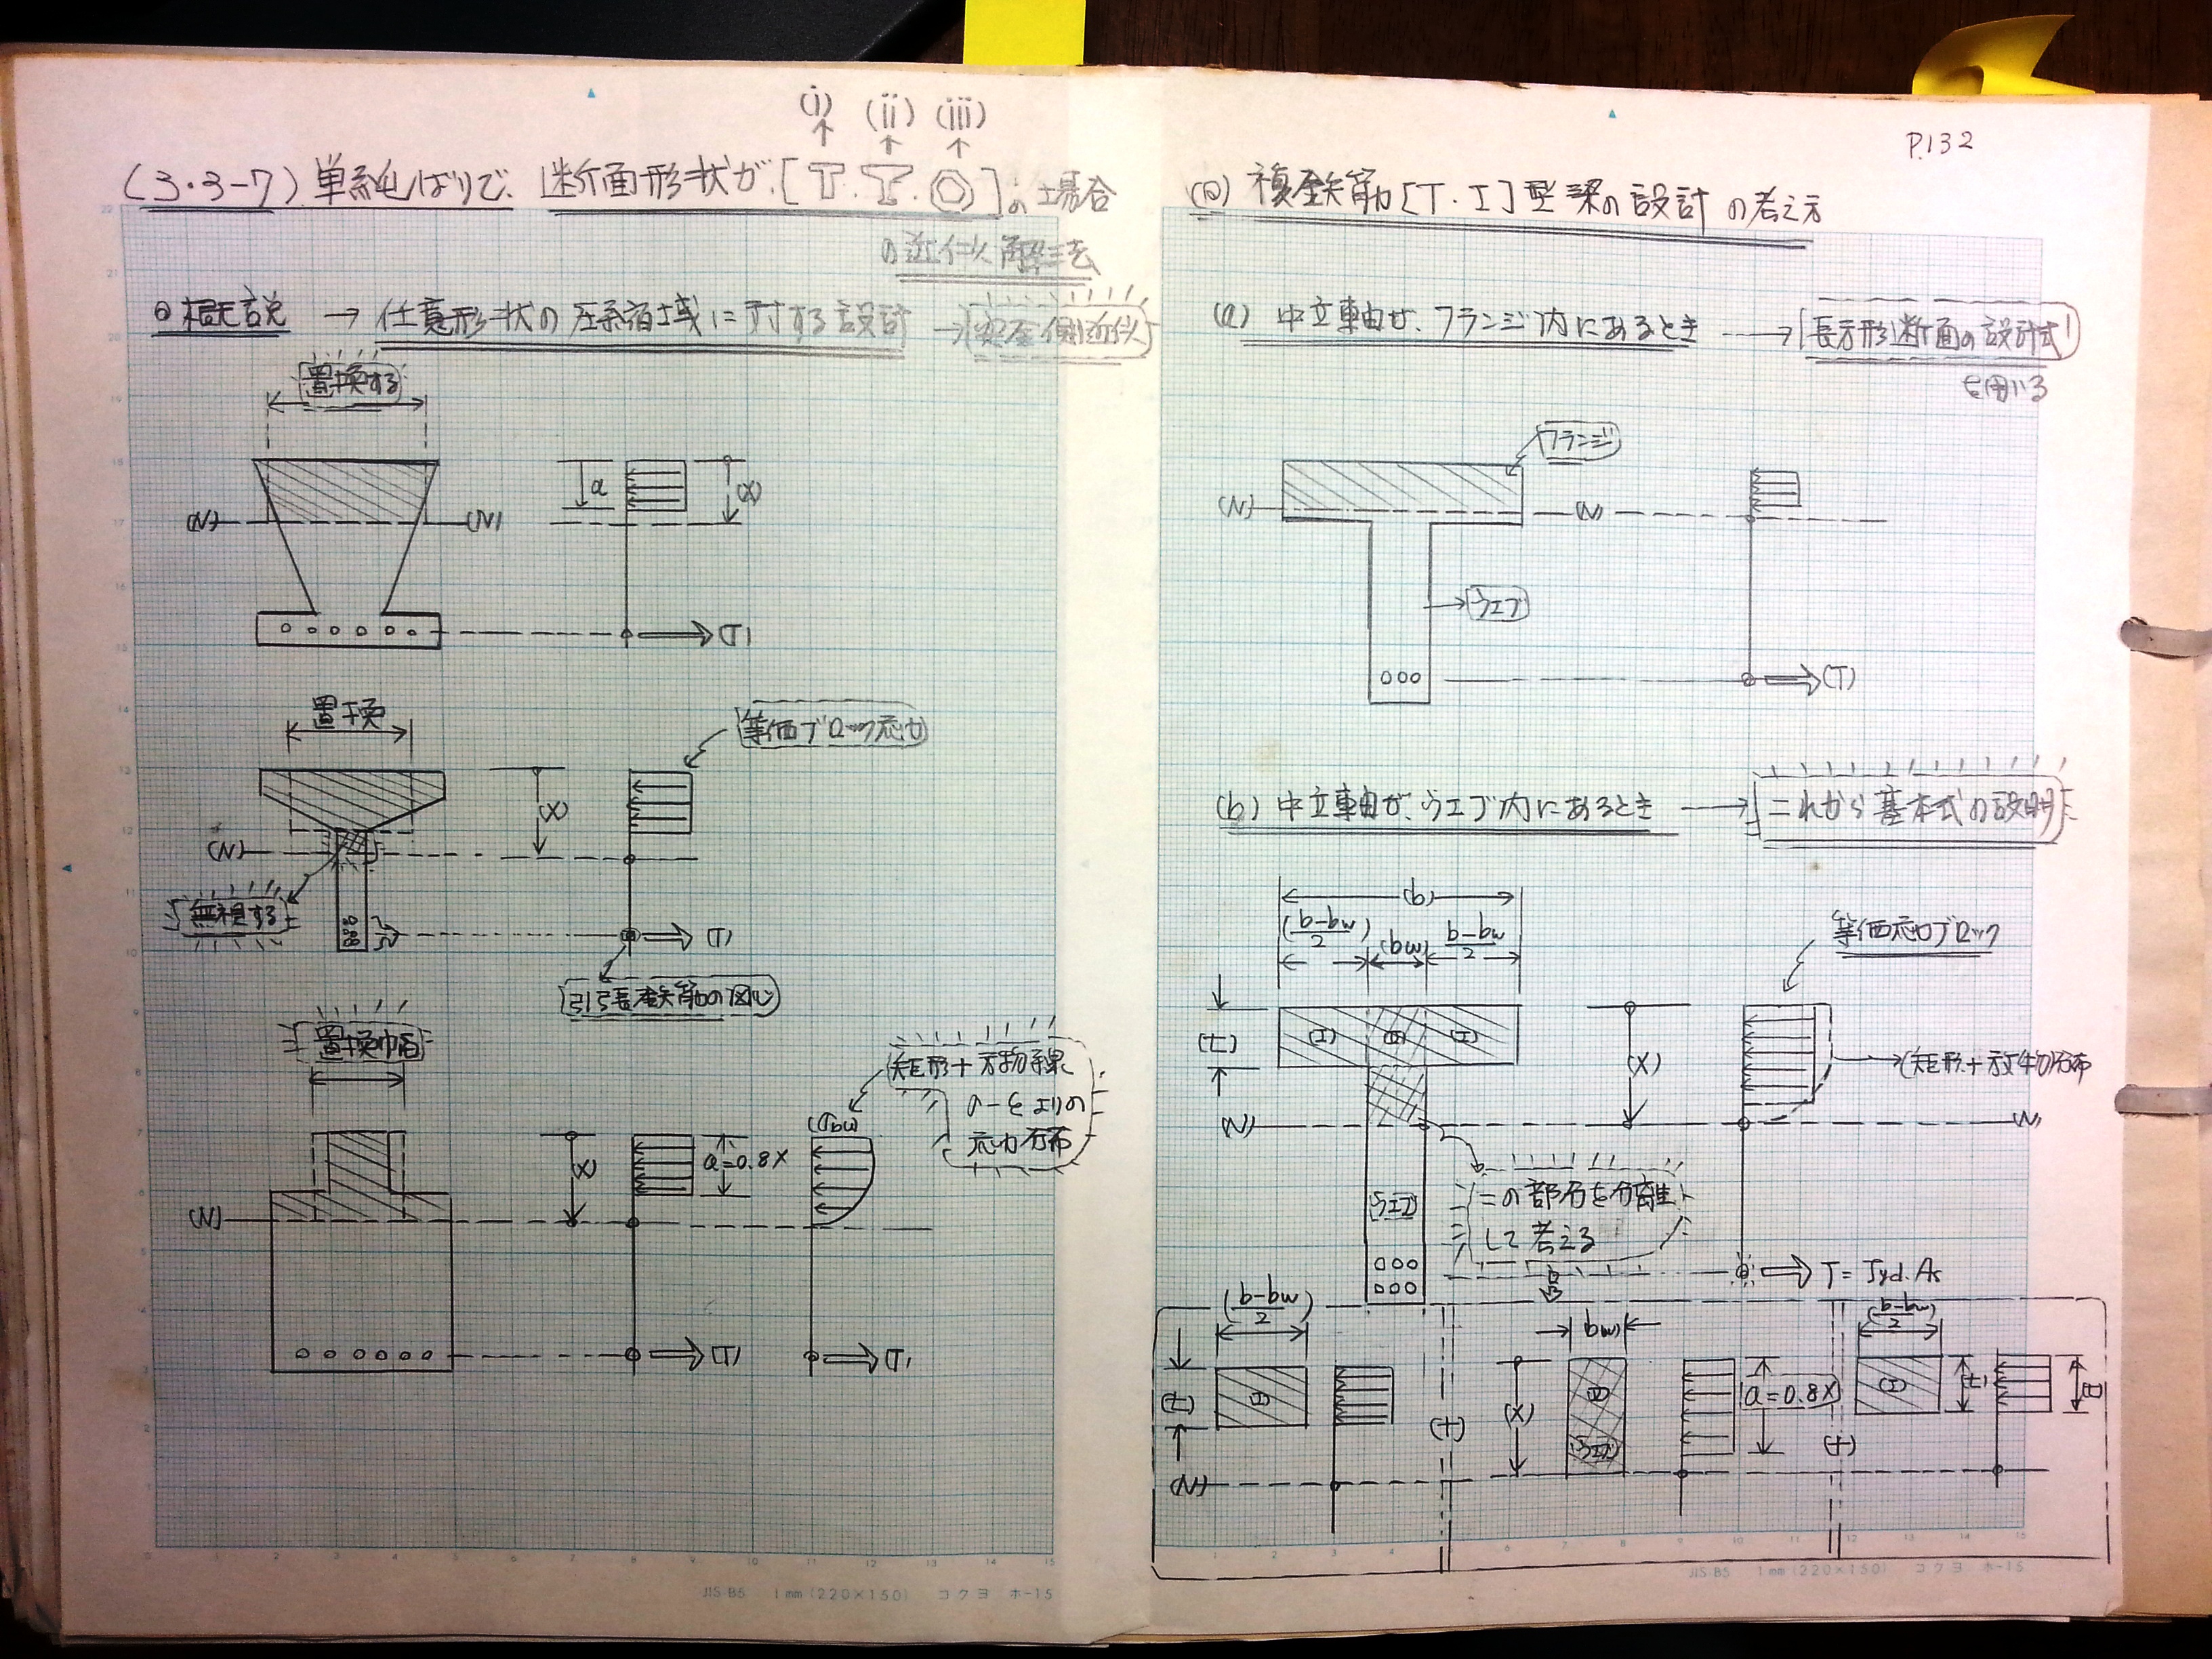 (i) (ii) (iii)
(3・3-7) 単純ばりで、断面形状が、[T.T.〇]の場合
の近似解法
概説 → 任意形状の圧縮領域に対する設計 → 安全側近似
置換する
a
(X)
(N) (N)
(T)
置換
等価ブロック応力
(X)
(N)
無視する
(T)
引張鉄筋の図心
置換巾
矩形+放物線
σ-εよりの
応力分布
X
a=0.8X
(N)
(T) (T)
JIS B5 1mm(220×150) コクヨ ホ-15
P.132
(ロ) 複鉄筋[T.I]型梁の設計の考え方
(a) 中立軸が、フランジ内にあるとき → 長方形断面の設計式
を用いる
フランジ
(N) (N)
ウエブ
(T)
(b) 中立軸が、ウエブ内にあるとき → これから基本式の説明
(b)
(b-bw/2) (bw) b-bw/2
等価応力ブロック
(t) (I) (I)
(X)
(矩形+放物)分布
(N) (N)
この部分を分離
して考える
(ウエブ)
T= fyd.As
(b-bw/2) bw (b-bw/2)
(t) (X) a=0.8X (I) (t)
(ウエブ)
(+) (+)
(N)
JIS B5 1mm(220×150) コクヨ ホ-15